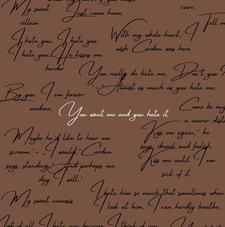 My sweet
villain
Just come home.
I hate you. I hate
you. I hate you.
I hate you. He kisses me
harder
With my whole heart, I
wish Cardan was here
I Tell
You really do hate me,
Almost as much as you hate me,
Don't you
By you, I am forever
undone.
You want me and you hate it
Come be ang
a nearer dist
Maybe he'd like to hear me
scream." - I would," Cardan
says, standing. And perhaps one
day I will."
"Kiss me again," he
says, drunk and foolish.
"Kiss me until I am
sick of it.
My sweet nemesis
I hate him so much that sometimes when
I look at him, I can hardly breathe.